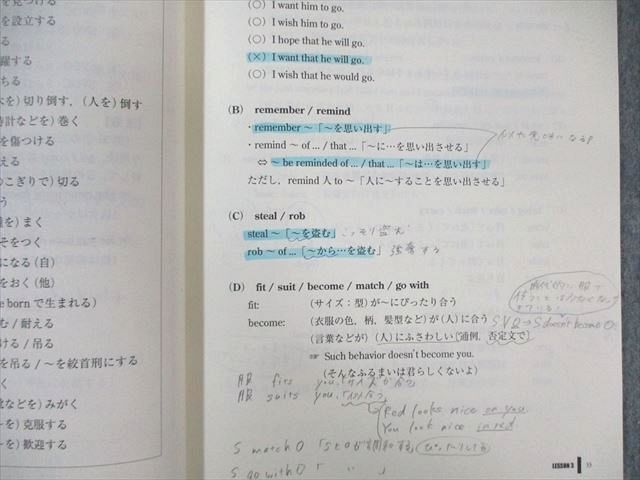 を設立する
る
躍する
ちる
木を) 切り倒す, (人を) 倒す
時計などを) 巻く
を傷つける
える
のこぎりで) 切る
を) まく
そをつく
になる (自)
をおく (他)
e born で生まれる)
む / 耐える
ける / 吊る
を吊る / ～を絞首刑にする
く
などを) みがく
を) 克服する
を) 歓迎する
(○) I want him to go.
(○) I wish him to go.
(○) I hope that he will go.
(×) I want that he will go.
(○) I wish that he would go.
(B) remember / remind
・remember ～「～を思い出す」
・remind ～ of ... / that ...「～に…を思い出させる」
⇔ ～ be reminded of ... / that ...「～は…を思い出す」
ただし, remind 人 to ～「人に～することを思い出させる」
(C) steal / rob
steal ～「～を盗む」こっそり盗む
rob ～ of ...「～から…を盗む」強奪する
(D) fit / suit / become / match / go with
fit: (サイズ：型) が～にぴったり合う
become: (衣服の色, 柄, 髪型など) が (人) に合う
(言葉などが) (人) にふさわしい [通例, 否定文で]
☞ Such behavior doesn't become you.
(そんなふるまいは君らしくないよ)
S doesn't become O.
服 fits you.「サイズが合う」
服 suits you.「似合う」
Red looks nice on you.
You look nice in red.
S match O「SとOが調和する」ぴったりしてる
S go with O「 〃 」
LESSON 3